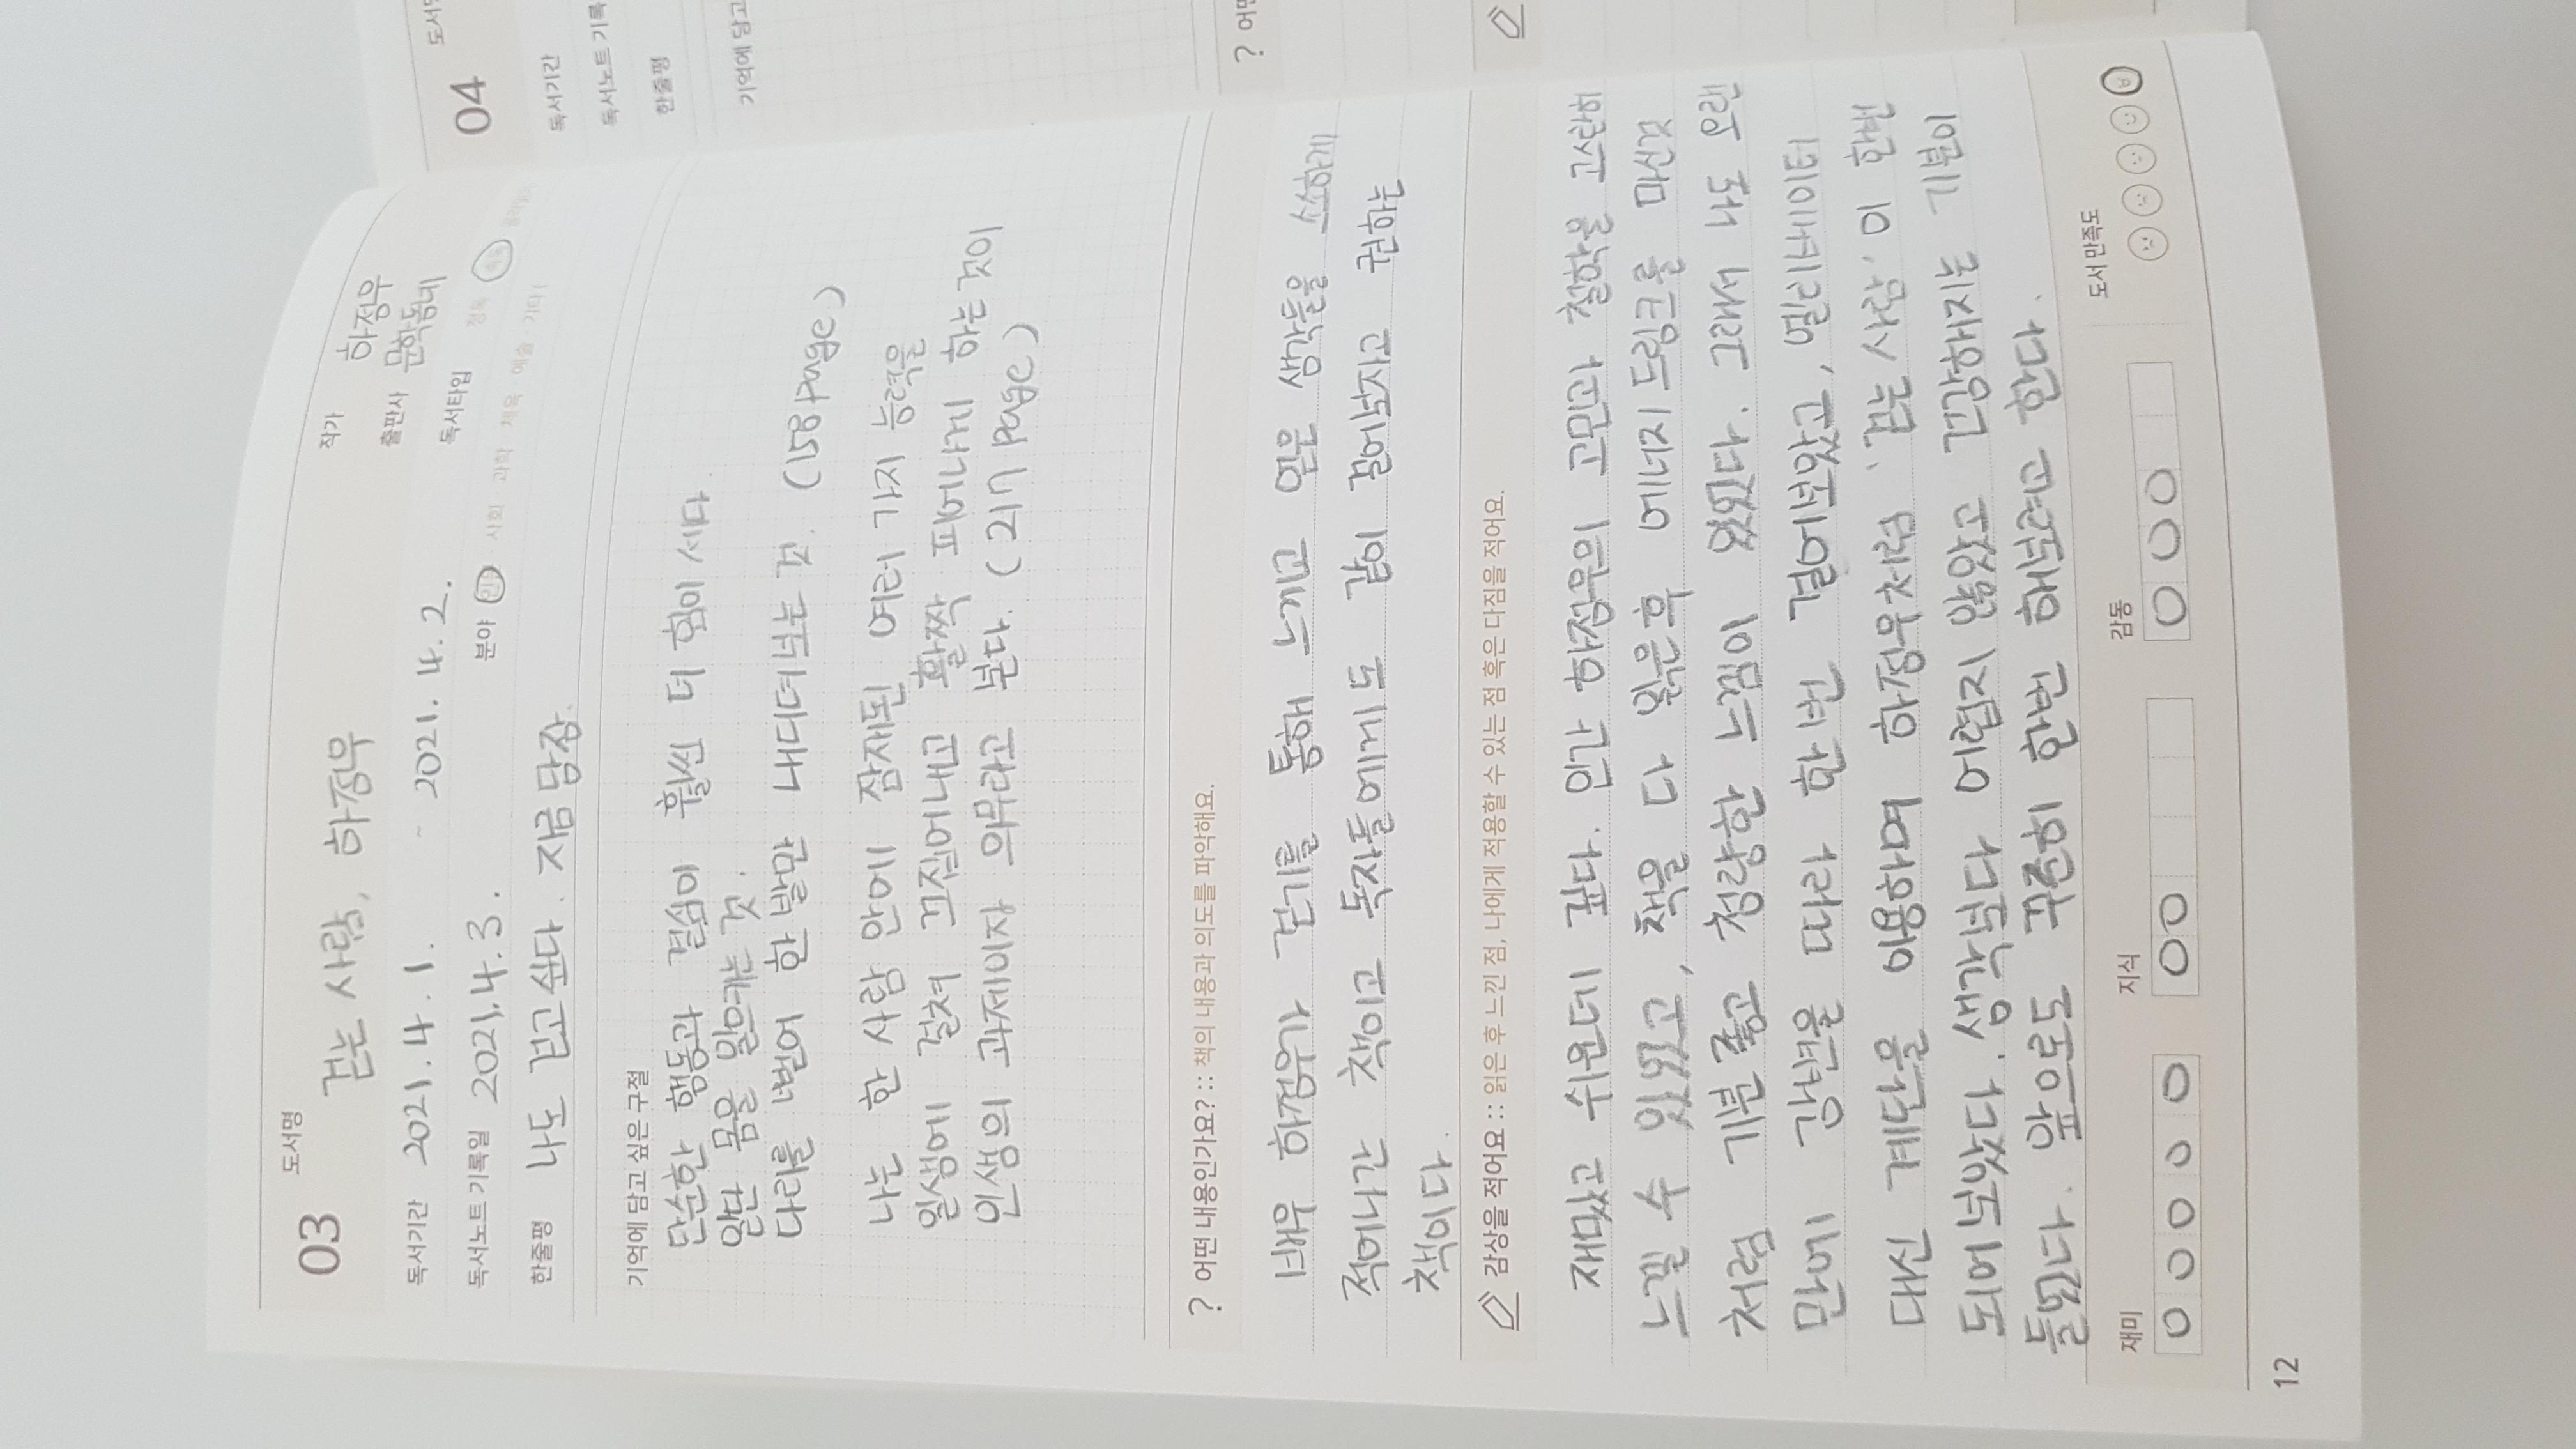 03 도서명 걷는 사람, 하정우
작가 하정우
출판사 문학동네
독서기간 2021. 4. 1. ~ 2021. 4. 2.
독서타입 정독 속독
독서노트 기록일 2021. 4. 3.
분야 인문 · 사회 · 과학 · 체육 · 예술 · 기타 (
한줄평 나도 걷고 싶다. 지금 당장.
기억에 담고 싶은 구절
단순한 행동과 결심이 훨씬 더 힘이 세다.
일단 몸을 일으키는 것.
다리를 뻗어 한 발만 내디뎌보는 것. (158 page)
나는 한 사람 안에 잠재된 여러 가지 능력을
일생에 걸쳐 끄집어내고 활짝 피어나게 하는 것이
인생의 과제이자 의무라고 본다. (217 page)
? 어떤 내용인가요? :: 책의 내용과 의도를 파악해요.
배우 하정우가 걷기를 통해 느끼고 얻은 생각들을 소소하게
적어나간 책이고 독자들에게도 같이 걸어보자고 권하는
책이다.
감상을 적어요 :: 읽은 후 느낀 점, 나에게 적용할 수 있는 점 혹은 다짐을 적어요.
재밌고 쉬운데 깊다. 인간 하정우의 고민과 철학을 고스란히
느낄 수 있었고, 책을 다 읽은후 에너지 드링크를 마신것
처럼 기분 좋고 청량한 느낌이 있었다. 그래서 나도 오랜
만에 강변을 따라 한번 걸어보았고, 엘리베이터
대신 계단을 이용하며 하정우처럼 '걷는 사람' 이 한번
되어보았다. 생각보다 어렵지 않았고 건강해지는 기분이
들었다. 앞으로도 꾸준히 한번 해보려고 한다.
재미 지식 감동 도서 만족도
12
04 도서명
독서기간
독서노트 기록
한줄평
기억에 담고
? 어떤